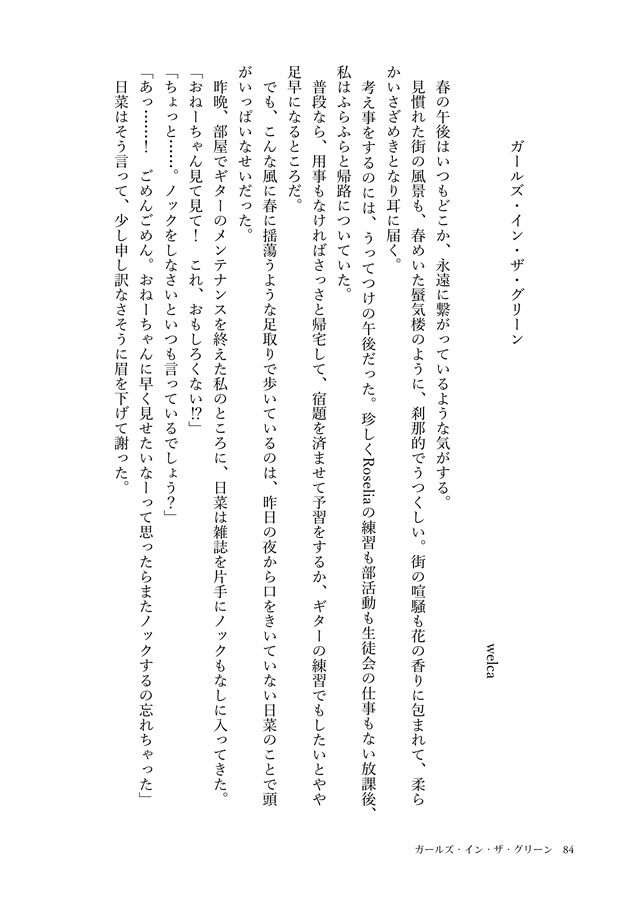 ガールズ・イン・ザ・グリーン
welca
春の午後はいつもどこか、永遠に繋がっているような気がする。
見慣れた街の風景も、春めいた蜃気楼のように、刹那的でうつくしい。街の喧騒も花の香りに包まれて、柔ら
かいさざめきとなり耳に届く。
考え事をするのには、うってつけの午後だった。珍しくRoseliaの練習も部活動も生徒会の仕事もない放課後、
私はふらふらと帰路についていた。
普段なら、用事もなければさっさと帰宅して、宿題を済ませて予習をするか、ギターの練習でもしたいとやや
足早になるところだ。
でも、こんな風に春に揺蕩うような足取りで歩いているのは、昨日の夜から口をきいていない日菜のことで頭
がいっぱいなせいだった。
昨晩、部屋でギターのメンテナンスを終えた私のところに、日菜は雑誌を片手にノックもなしに入ってきた。
「おねーちゃん見て見て！　これ、おもしろくない!?」
「ちょっと……。ノックをしなさいといつも言っているでしょう？」
「あっ……！　ごめんごめん。おねーちゃんに早く見せたいなーって思ったらまたノックするの忘れちゃった」
日菜はそう言って、少し申し訳なさそうに眉を下げて謝った。
ガールズ・イン・ザ・グリーン　84